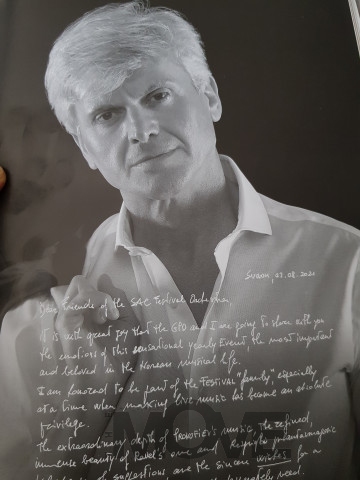 Suwon, 07.08.2021
Dear Friends of the SAC Festival Orchestra,
it is with great joy that the GPO and I are going to share with you
the emotions of this sensational yearly Event, the most important
and beloved in the Korean musical life.
I am honored to be part of the FESTIVAL "family", especially
at a time when making live music has become an absolute
privilege.
The extraordinary depth of PROKOFIEV's music, the refined,
immense beauty of Ravel's one and Respighi's phantasmagoric
of suggestions are the sincere wishes for a
need.
MOVE